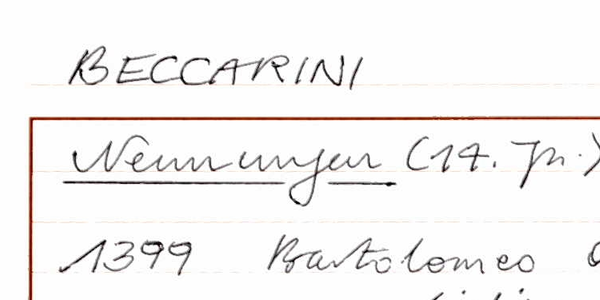 BECCARINI
Nennungen (14. Jh.)
1399 Bartolomeo